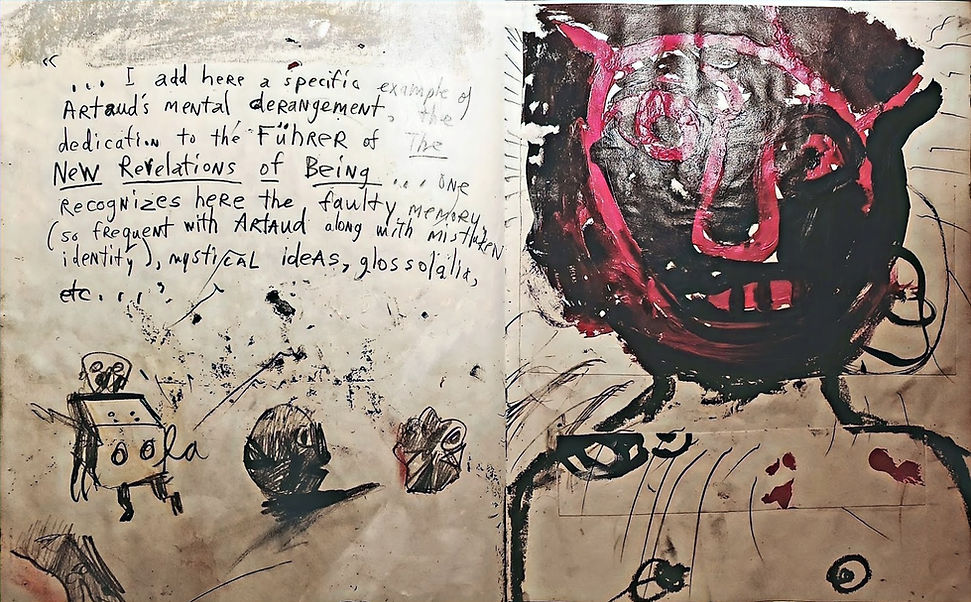 “
... I add here a specific example of
Artaud's mental derangement, the
dedication to the FüHRER of The
New Revelations of Being ... one
recognizes here the faulty memory
(so frequent with Artaud along with mistaken
identity), mystical ideas, glossolalia,
etc. . . . "
oola